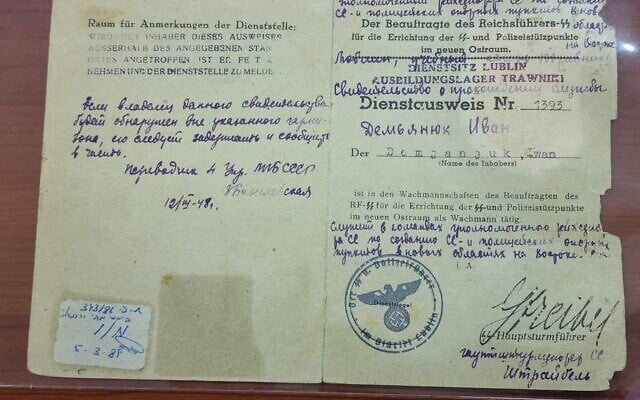 Raum für Anmerkungen der Dienststelle:
WIRD DER INHABER DIESES AUSWEISES
AUSSERHALB DES ANGEGEBENEN STAN
ORTES ANGETROFFEN IST ER FE T Z
NEHMEN UND DER DIENSTSTELLE ZU MELDE
Если владелец данного свидетельства
будет обнаружен вне указанного гарни-
зона, его следует задержать и сообщить
в часть.
Переводчик 4 Упр. МГБ СССР
12/III-48г.
373/86
N/1
5.3.87
уполномоченный рейхсфюрера СС по созданию
СС- и полицейских опорных пунктов в новых
Der Beauftragte des Reichsführers-SS
областях
für die Errichtung der SS- und Polizeistützpunkte
im neuen Ostraum.
на Востоке
DIENSTSITZ LUBLIN
AUSBILDUNGSLAGER TRAWNIKI
Свидетельство о прохождении службы
Dienstausweis Nr. 1393
Демьянюк Иван
Der Demjanjuk, Iwan
(Name des Inhabers)
ist in den Wachmannschaften des Beauftragten des
RF-SS für die Errichtung der SS- und Polizeistützpunkte
im neuen Ostraum als Wachmann tätig.
Служит в командах уполномоченного рейхсфюре-
ра СС по созданию СС- и полицейских опорных
пунктов в новых областях на Востоке.
I. A.
Der SS u. Polizeiführer
Dienstsiegel
im Distrikt Lublin
Streibel
SS Hauptsturmführer
гауптштурмфюрер СС
Штрайбель